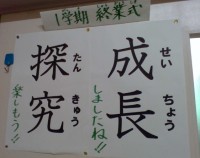 1学期 終業式
成長
せい
ちょう
しましたね!!
探究
たん
きゅう
楽しもう!!